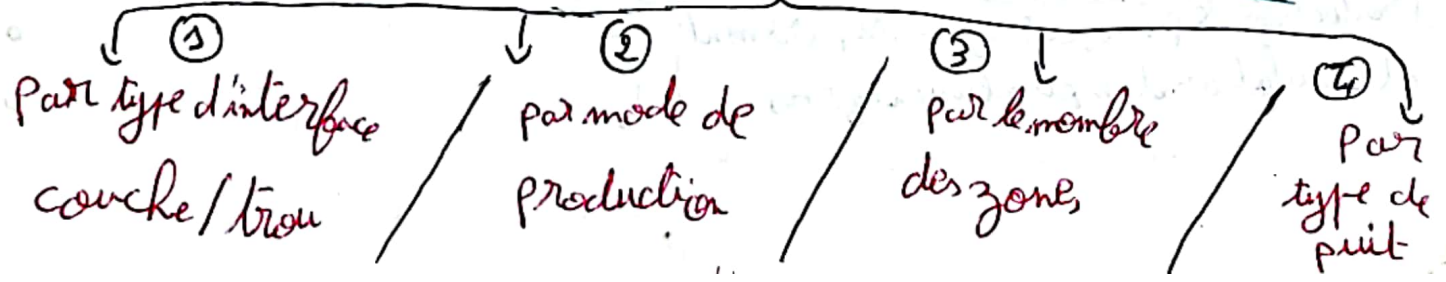 ①
par type d'interface
couche/trou
②
par mode de
production
③
par le nombre
des zones
④
Par
type de
puit